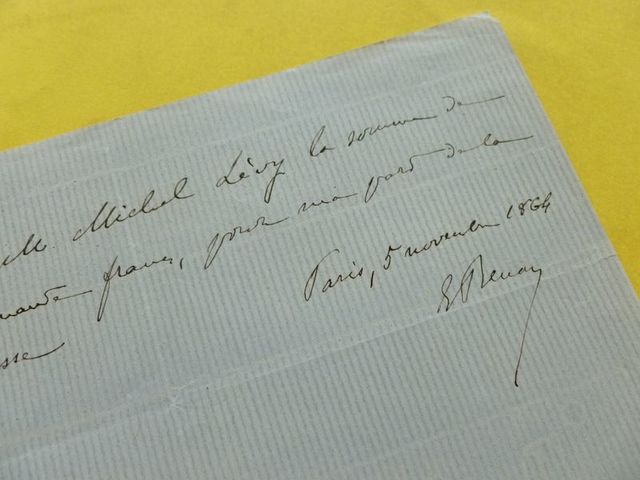 M. Michel Lévy la somme de
francs, pour ma part de la
Paris, 5 novembre 1864
E Renan